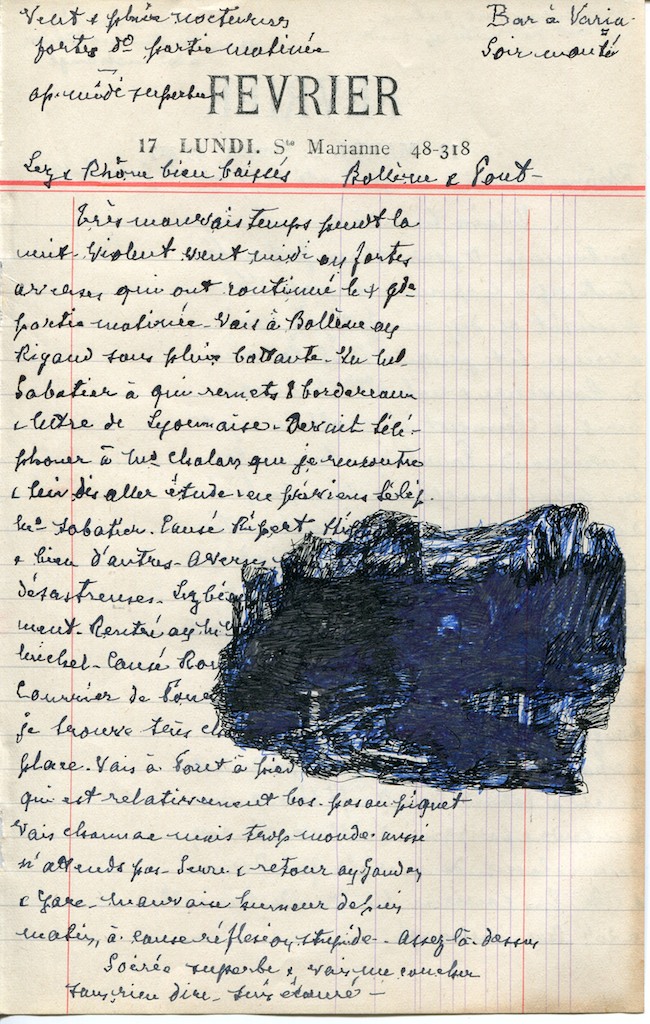 Vent & pluie nocturnes Bar à Varia-
fortes do partie matinée Soir monté
ap-midi superbe
FEVRIER
17 LUNDI. Ste Marianne 48-318
Lez & Rhône bien baissés Bollène & Pont-
Très mauvais temps pendt la
nuit. Violent vent midi avec fortes
averses qui ont continué le & gde
partie matinée. Vais à Bollène avec
Rigaud sous pluie battante. Vu
Sabatier à qui remets 8 bordereaux
& lettre de Lyonnaise. Devait télé-
phoner à Me Chalan que je rencontre
& lui dis aller étude
Me Sabatier. Causé Ripert
& bien d'autres. Averses
désastreuses. Lez
ment. Rentré avec
Michel. Causé
Courrier de
je trouve très
place. Vais à Pont à pied
qui est relativement bas. pas au piquet
Vais mais trop monde. aussi
n'attends pas. Serre & retour avec
& Gare. Mauvaise humeur depuis
matin, à cause réflexion stupide. Assez là-dessus
Soirée superbe & vais me coucher
sans rien dire. suis écœuré-